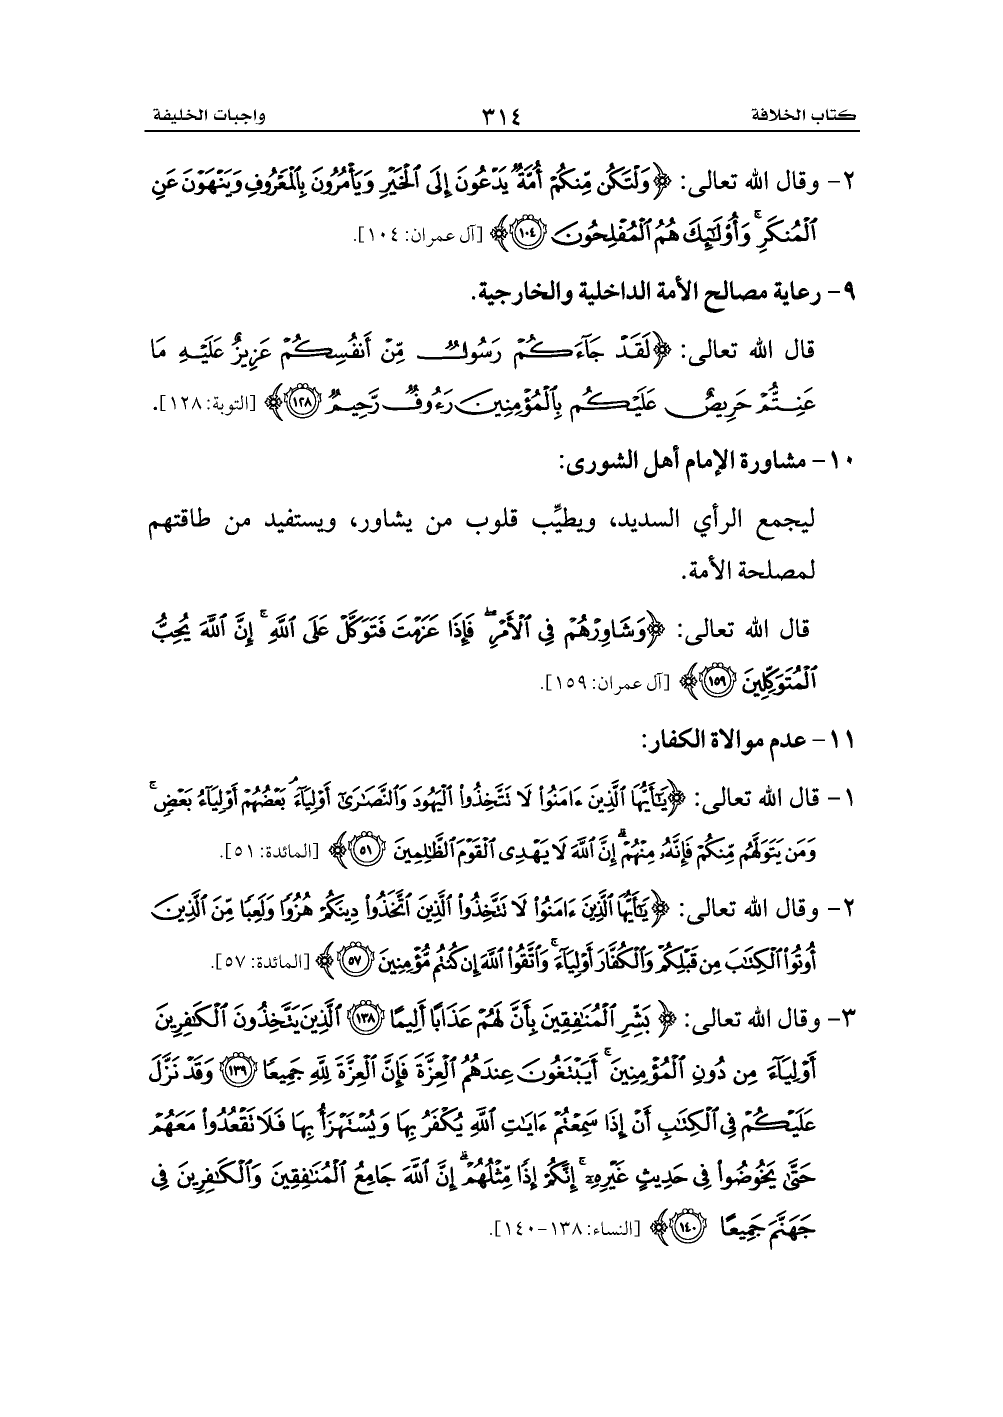 كتاب الخلافة ٣١٤ واجبات الخليفة
٢- وقال الله تعالى: ﴿وَلْتَكُن مِّنكُمْ أُمَّةٌ يَدْعُونَ إِلَى ٱلْخَيْرِ وَيَأْمُرُونَ بِٱلْمَعْرُوفِ وَيَنْهَوْنَ عَنِ
ٱلْمُنكَرِ ۚ وَأُو۟لَـٰٓئِكَ هُمُ ٱلْمُفْلِحُونَ ١٠٤﴾ [آل عمران: ١٠٤].
٩- رعاية مصالح الأمة الداخلية والخارجية.
قال الله تعالى: ﴿لَقَدْ جَآءَكُمْ رَسُولٌ مِّنْ أَنفُسِكُمْ عَزِيزٌ عَلَيْهِ مَا
عَنِتُّمْ حَرِيصٌ عَلَيْكُم بِٱلْمُؤْمِنِينَ رَءُوفٌ رَّحِيمٌ ١٢٨﴾ [التوبة: ١٢٨].
١٠- مشاورة الإمام أهل الشورى:
ليجمع الرأي السديد، ويطيِّب قلوب من يشاور، ويستفيد من طاقتهم
لمصلحة الأمة.
قال الله تعالى: ﴿وَشَاوِرْهُمْ فِى ٱلْأَمْرِ ۖ فَإِذَا عَزَمْتَ فَتَوَكَّلْ عَلَى ٱللَّهِ ۚ إِنَّ ٱللَّهَ يُحِبُّ
ٱلْمُتَوَكِّلِينَ ١٥٩﴾ [آل عمران: ١٥٩].
١١- عدم موالاة الكفار:
١- قال الله تعالى: ﴿يَـٰٓأَيُّهَا ٱلَّذِينَ ءَامَنُوا۟ لَا تَتَّخِذُوا۟ ٱلْيَهُودَ وَٱلنَّصَـٰرَىٰٓ أَوْلِيَآءَ ۘ بَعْضُهُمْ أَوْلِيَآءُ بَعْضٍ ۚ
وَمَن يَتَوَلَّهُم مِّنكُمْ فَإِنَّهُۥ مِنْهُمْ ۗ إِنَّ ٱللَّهَ لَا يَهْدِى ٱلْقَوْمَ ٱلظَّـٰلِمِينَ ٥١﴾ [المائدة: ٥١].
٢- وقال الله تعالى: ﴿يَـٰٓأَيُّهَا ٱلَّذِينَ ءَامَنُوا۟ لَا تَتَّخِذُوا۟ ٱلَّذِينَ ٱتَّخَذُوا۟ دِينَكُمْ هُزُوًا وَلَعِبًا مِّنَ ٱلَّذِينَ
أُوتُوا۟ ٱلْكِتَـٰبَ مِن قَبْلِكُمْ وَٱلْكُفَّارَ أَوْلِيَآءَ ۚ وَٱتَّقُوا۟ ٱللَّهَ إِن كُنتُم مُّؤْمِنِينَ ٥٧﴾ [المائدة: ٥٧].
٣- وقال الله تعالى: ﴿بَشِّرِ ٱلْمُنَـٰفِقِينَ بِأَنَّ لَهُمْ عَذَابًا أَلِيمًا ١٣٨ ٱلَّذِينَ يَتَّخِذُونَ ٱلْكَـٰفِرِينَ
أَوْلِيَآءَ مِن دُونِ ٱلْمُؤْمِنِينَ ۚ أَيَبْتَغُونَ عِندَهُمُ ٱلْعِزَّةَ فَإِنَّ ٱلْعِزَّةَ لِلَّهِ جَمِيعًا ١٣٩ وَقَدْ نَزَّلَ
عَلَيْكُمْ فِى ٱلْكِتَـٰبِ أَنْ إِذَا سَمِعْتُمْ ءَايَـٰتِ ٱللَّهِ يُكْفَرُ بِهَا وَيُسْتَهْزَأُ بِهَا فَلَا تَقْعُدُوا۟ مَعَهُمْ
حَتَّىٰ يَخُوضُوا۟ فِى حَدِيثٍ غَيْرِهِۦٓ ۚ إِنَّكُمْ إِذًا مِّثْلُهُمْ ۗ إِنَّ ٱللَّهَ جَامِعُ ٱلْمُنَـٰفِقِينَ وَٱلْكَـٰفِرِينَ فِى
جَهَنَّمَ جَمِيعًا ١٤٠﴾ [النساء: ١٣٨-١٤٠].